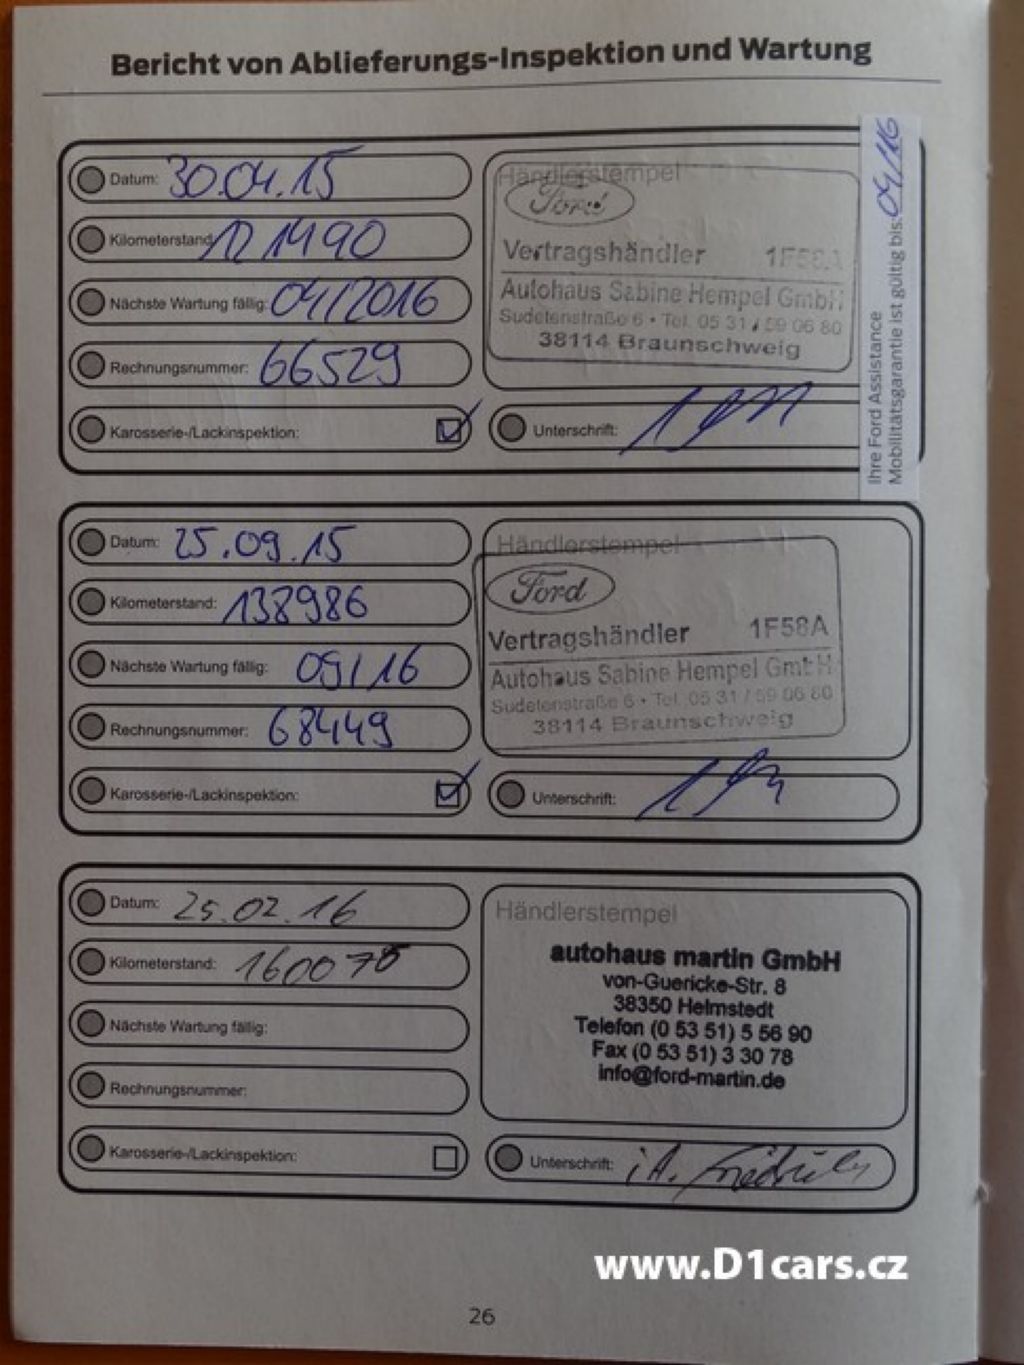 Bericht von Ablieferungs-Inspektion und Wartung
Datum: 30.04.15
Kilometerstand: 121490
Nächste Wartung fällig: 04/2016
Rechnungsnummer: 66529
Karosserie-/Lackinspektion:
Händlerstempel
Ford
Vertragshändler 1F58A
Autohaus Sabine Hempel GmbH
Sudetenstraße 6 • Tel. 05 31 / 59 06 80
38114 Braunschweig
Unterschrift:
Ihre Ford Assistance
Mobilitätsgarantie ist gültig bis: 04/16
Datum: 25.09.15
Kilometerstand: 138986
Nächste Wartung fällig: 09/16
Rechnungsnummer: 68449
Karosserie-/Lackinspektion:
Händlerstempel
Ford
Vertragshändler 1F58A
Autohaus Sabine Hempel GmbH
Sudetenstraße 6 • Tel. 05 31 / 59 06 80
38114 Braunschweig
Unterschrift:
Datum: 25.02.16
Kilometerstand: 160078
Nächste Wartung fällig:
Rechnungsnummer:
Karosserie-/Lackinspektion:
Händlerstempel
autohaus martin GmbH
von-Guericke-Str. 8
38350 Helmstedt
Telefon (0 53 51) 5 56 90
Fax (0 53 51) 3 30 78
info@ford-martin.de
Unterschrift: i.A.
www.D1cars.cz
26